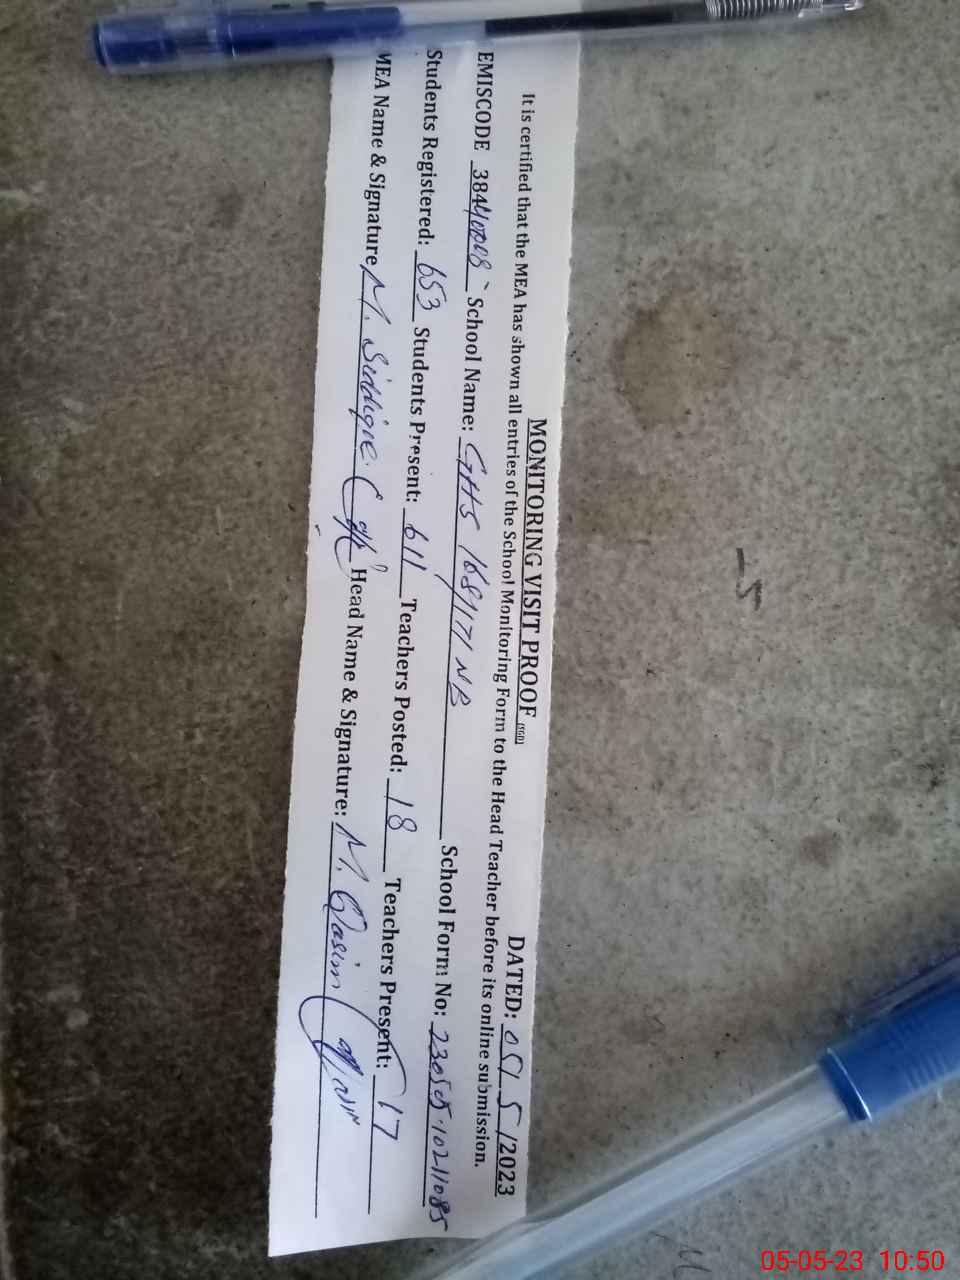 MONITORING VISIT PROOF (SGD) DATED: 05/5/2023
It is certified that the MEA has shown all entries of the School Monitoring Form to the Head Teacher before its online submission.
EMISCODE School Name: GHS 168/171 NB School Form No:
Students Registered: 653 Students Present: 611 Teachers Posted: 18 Teachers Present: 17
MEA Name & Signature M. Siddique Head Name & Signature: M. Qasim
05-05-23 10:50